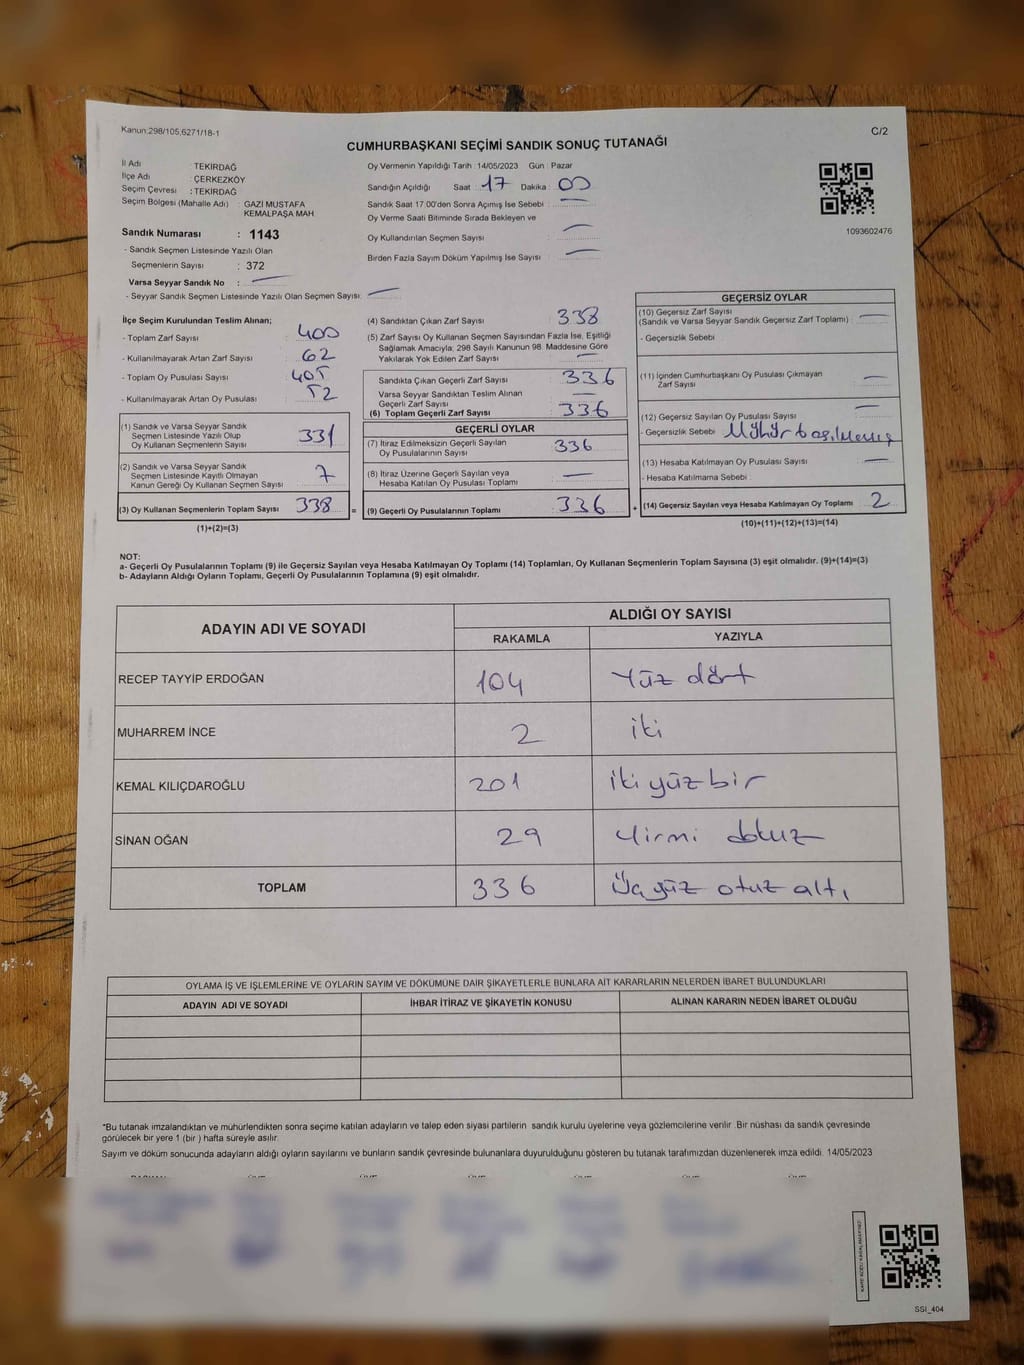 Kanun:298/105,6271/18-1
C/2
CUMHURBAŞKANI SEÇİMİ SANDIK SONUÇ TUTANAĞI
İl Adı : TEKİRDAĞ
İlçe Adı : ÇERKEZKÖY
Seçim Çevresi : TEKİRDAĞ
Seçim Bölgesi (Mahalle Adı) : GAZİ MUSTAFA
KEMALPAŞA MAH.
Sandık Numarası : 1143
- Sandık Seçmen Listesinde Yazılı Olan
Seçmenlerin Sayısı : 372
Varsa Seyyar Sandık No : —
- Seyyar Sandık Seçmen Listesinde Yazılı Olan Seçmen Sayısı: —
Oy Vermenin Yapıldığı Tarih : 14/05/2023 Gün : Pazar
Sandığın Açıldığı Saat : 17 Dakika : 00
Sandık Saat 17.00'den Sonra Açımış İse Sebebi : —
Oy Verme Saati Bitiminde Sırada Bekleyen ve
Oy Kullandırılan Seçmen Sayısı : —
Birden Fazla Sayım Döküm Yapılmış İse Sayısı : —
1093602476
İlçe Seçim Kurulundan Teslim Alınan;
- Toplam Zarf Sayısı : 400
- Kullanılmayarak Artan Zarf Sayısı : 62
- Toplam Oy Pusulası Sayısı : 405
- Kullanılmayarak Artan Oy Pusulası : 52
(1) Sandık ve Varsa Seyyar Sandık
Seçmen Listesinde Yazılı Olup
Oy Kullanan Seçmenlerin Sayısı 331
(2) Sandık ve Varsa Seyyar Sandık
Seçmen Listesinde Kayıtlı Olmayan
Kanun Gereği Oy Kullanan Seçmen Sayısı 7
(3) Oy Kullanan Seçmenlerin Toplam Sayısı 338 =
(1)+(2)=(3)
(4) Sandıktan Çıkan Zarf Sayısı : 338
(5) Zarf Sayısı Oy Kullanan Seçmen Sayısından Fazla İse, Eşitliği
Sağlamak Amacıyla; 298 Sayılı Kanunun 98. Maddesine Göre
Yakılarak Yok Edilen Zarf Sayısı : —
Sandıkta Çıkan Geçerli Zarf Sayısı : 336
Varsa Seyyar Sandıktan Teslim Alınan
Geçerli Zarf Sayısı : —
(6) Toplam Geçerli Zarf Sayısı : 336
GEÇERLİ OYLAR
(7) İtiraz Edilmeksizin Geçerli Sayılan
Oy Pusulalarının Sayısı : 336
(8) İtiraz Üzerine Geçerli Sayılan veya
Hesaba Katılan Oy Pusulası Toplamı : —
(9) Geçerli Oy Pusulalarının Toplamı : 336 +
GEÇERSİZ OYLAR
(10) Geçersiz Zarf Sayısı
(Sandık ve Varsa Seyyar Sandık Geçersiz Zarf Toplamı) : —
- Geçersizlik Sebebi :
(11) İçinden Cumhurbaşkanı Oy Pusulası Çıkmayan
Zarf Sayısı : —
(12) Geçersiz Sayılan Oy Pusulası Sayısı : —
- Geçersizlik Sebebi : Mühür basılmamış
(13) Hesaba Katılmayan Oy Pusulası Sayısı : —
- Hesaba Katılmama Sebebi :
(14) Geçersiz Sayılan veya Hesaba Katılmayan Oy Toplamı : 2
(10)+(11)+(12)+(13)=(14)
NOT:
a- Geçerli Oy Pusulalarının Toplamı (9) ile Geçersiz Sayılan veya Hesaba Katılmayan Oy Toplamı (14) Toplamları, Oy Kullanan Seçmenlerin Toplam Sayısına (3) eşit olmalıdır. (9)+(14)=(3)
b- Adayların Aldığı Oyların Toplamı, Geçerli Oy Pusulalarının Toplamına (9) eşit olmalıdır.
ADAYIN ADI VE SOYADI
ALDIĞI OY SAYISI
RAKAMLA YAZIYLA
RECEP TAYYİP ERDOĞAN 104 Yüz dört
MUHARREM İNCE 2 iki
KEMAL KILIÇDAROĞLU 201 iki yüz bir
SİNAN OĞAN 29 Yirmi dokuz
TOPLAM 336 Üç yüz otuz altı
OYLAMA İŞ VE İŞLEMLERİNE VE OYLARIN SAYIM VE DÖKÜMÜNE DAİR ŞİKAYETLERLE BUNLARA AİT KARARLARIN NELERDEN İBARET BULUNDUKLARI
ADAYIN ADI VE SOYADI İHBAR İTİRAZ VE ŞİKAYETİN KONUSU ALINAN KARARIN NEDEN İBARET OLDUĞU
*Bu tutanak imzalandıktan ve mühürlendikten sonra seçime katılan adayların ve talep eden siyasi partilerin sandık kurulu üyelerine veya gözlemcilerine verilir .Bir nüshası da sandık çevresinde
görülecek bir yere 1 (bir ) hafta süreyle asılır.
Sayım ve döküm sonucunda adayların aldığı oyların sayılarını ve bunların sandık çevresinde bulunanlara duyurulduğunu gösteren bu tutanak tarafımızdan düzenlenerek imza edildi. 14/05/2023
SSI_404